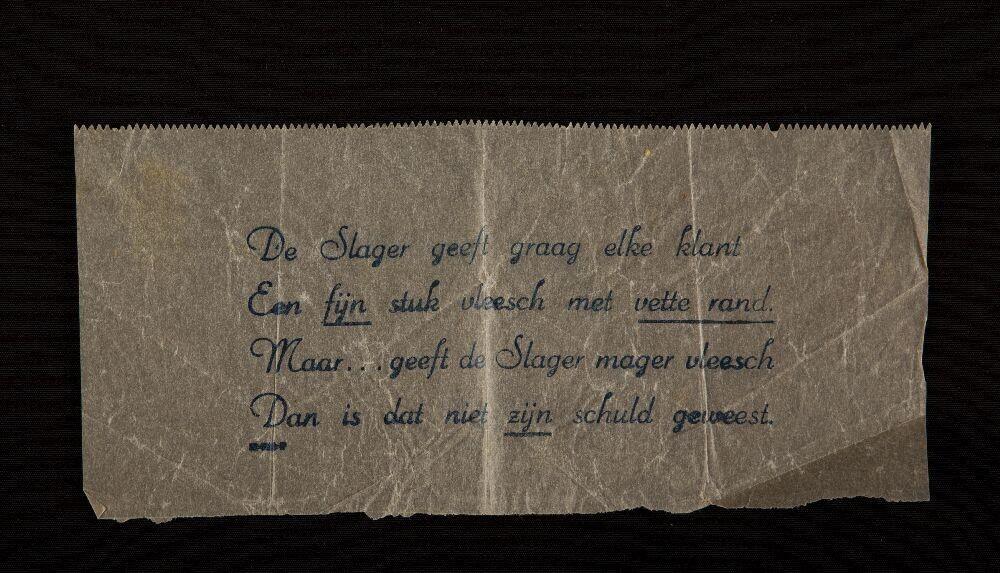 De Slager geeft graag elke klant
Een fijn stuk vleesch met vette rand.
Maar...geeft de Slager mager vleesch
Dan is dat niet zijn schuld geweest.